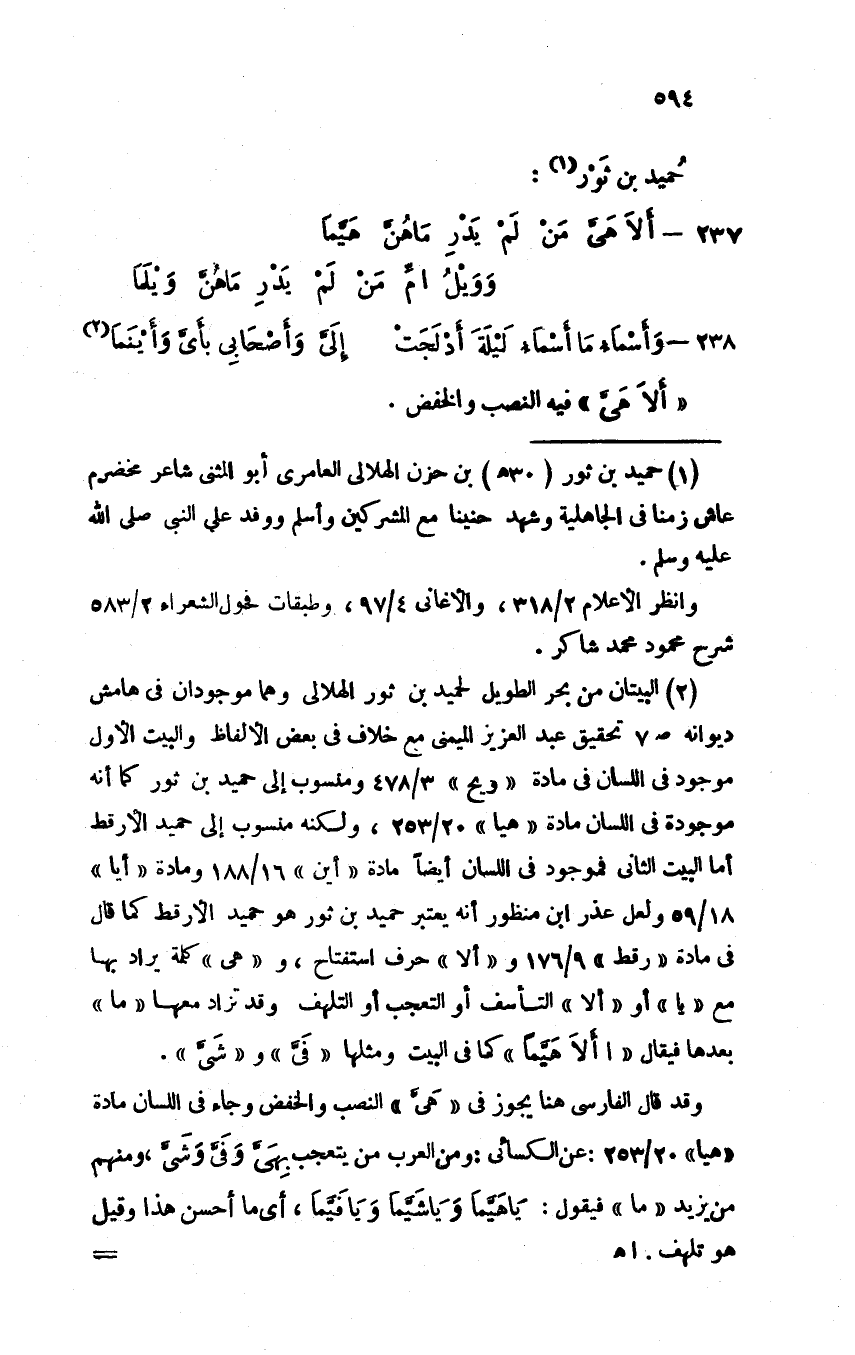 ٥٩٤
حُميد بن ثَوْر(١) :
٢٣٧ – أَلاَ هَىَّ مَنْ لَمْ يَدْرِ مَاهُنَّ هَيَّمَا
وَوَيْلُ امِّ مَنْ لَمْ يَدْرِ مَاهُنَّ وَيْلَمَا
٢٣٨ – وَأَسْمَاء مَا أَسْمَاء لَيْلَةَ أَدْلَجَتْ إِلَىَّ وَأَصْحَابِى بأَىَّ وَأَيْنَمَا(٢)
« أَلاَ هَىَّ » فيه النصب والخفض .
(١) حميد بن ثور ( ٣٠هـ ) بن حزن الهلالى العامرى أبو المثنى شاعر مخضرم
عاش زمنا فى الجاهلية وشهد حنينا مع المشركين وأسلم ووفد علي النبى صلى الله
عليه وسلم .
وانظر الأعلام ٣١٨/٢ ، والأغانى ٩٧/٤ ، وطبقات فحول الشعراء ٥٨٣/٢
شرح محمود محمد شاكر .
(٢) البيتان من بحر الطويل لحميد بن ثور الهلالى وهما موجودان فى هامش
ديوانه صـ ٧ تحقيق عبد العزيز الميمنى مع خلاف فى بعض الألفاظ والبيت الأول
موجود فى اللسان فى مادة « ويح » ٤٧٨/٣ ومنسوب إلى حميد بن ثور كما أنه
موجودة فى اللسان مادة « هيا » ٢٥٣/٢٠ ، ولكنه منسوب إلى حميد الأرقط
أما البيت الثانى فموجود فى اللسان أيضاً مادة « أين » ١٨٨/١٦ ومادة « أيا »
٥٩/١٨ ولعل عذر ابن منظور أنه يعتبر حميد بن ثور هو حميد الأرقط كما قال
فى مادة « رقط » ١٧٦/٩ و « ألا » حرف استفتاح ، و « هى » كلمة يراد بها
مع « يا » أو « ألا » التأسف أو التعجب أو التلهف وقد تزاد معها « ما »
بعدها فيقال « ا أَلاَ هَيَّمَا » كما فى البيت ومثلها « فَىَّ » و « شَىَّ » .
وقد قال الفارسى هنا يجوز فى « هَىَّ » النصب والخفض وجاء فى اللسان مادة
«هيا» ٢٥٣/٢٠ :عن الكسائى :ومن العرب من يتعجب بِهَىَّ وَفَىَّ وَشَىَّ ،ومنهم
من يزيد « ما » فيقول : يَاهَيَّمَا وَيَاشَيَّمَا وَيَافَيَّمَا ، أى ما أحسن هذا وقيل
هو تلهف . ا هـ
=